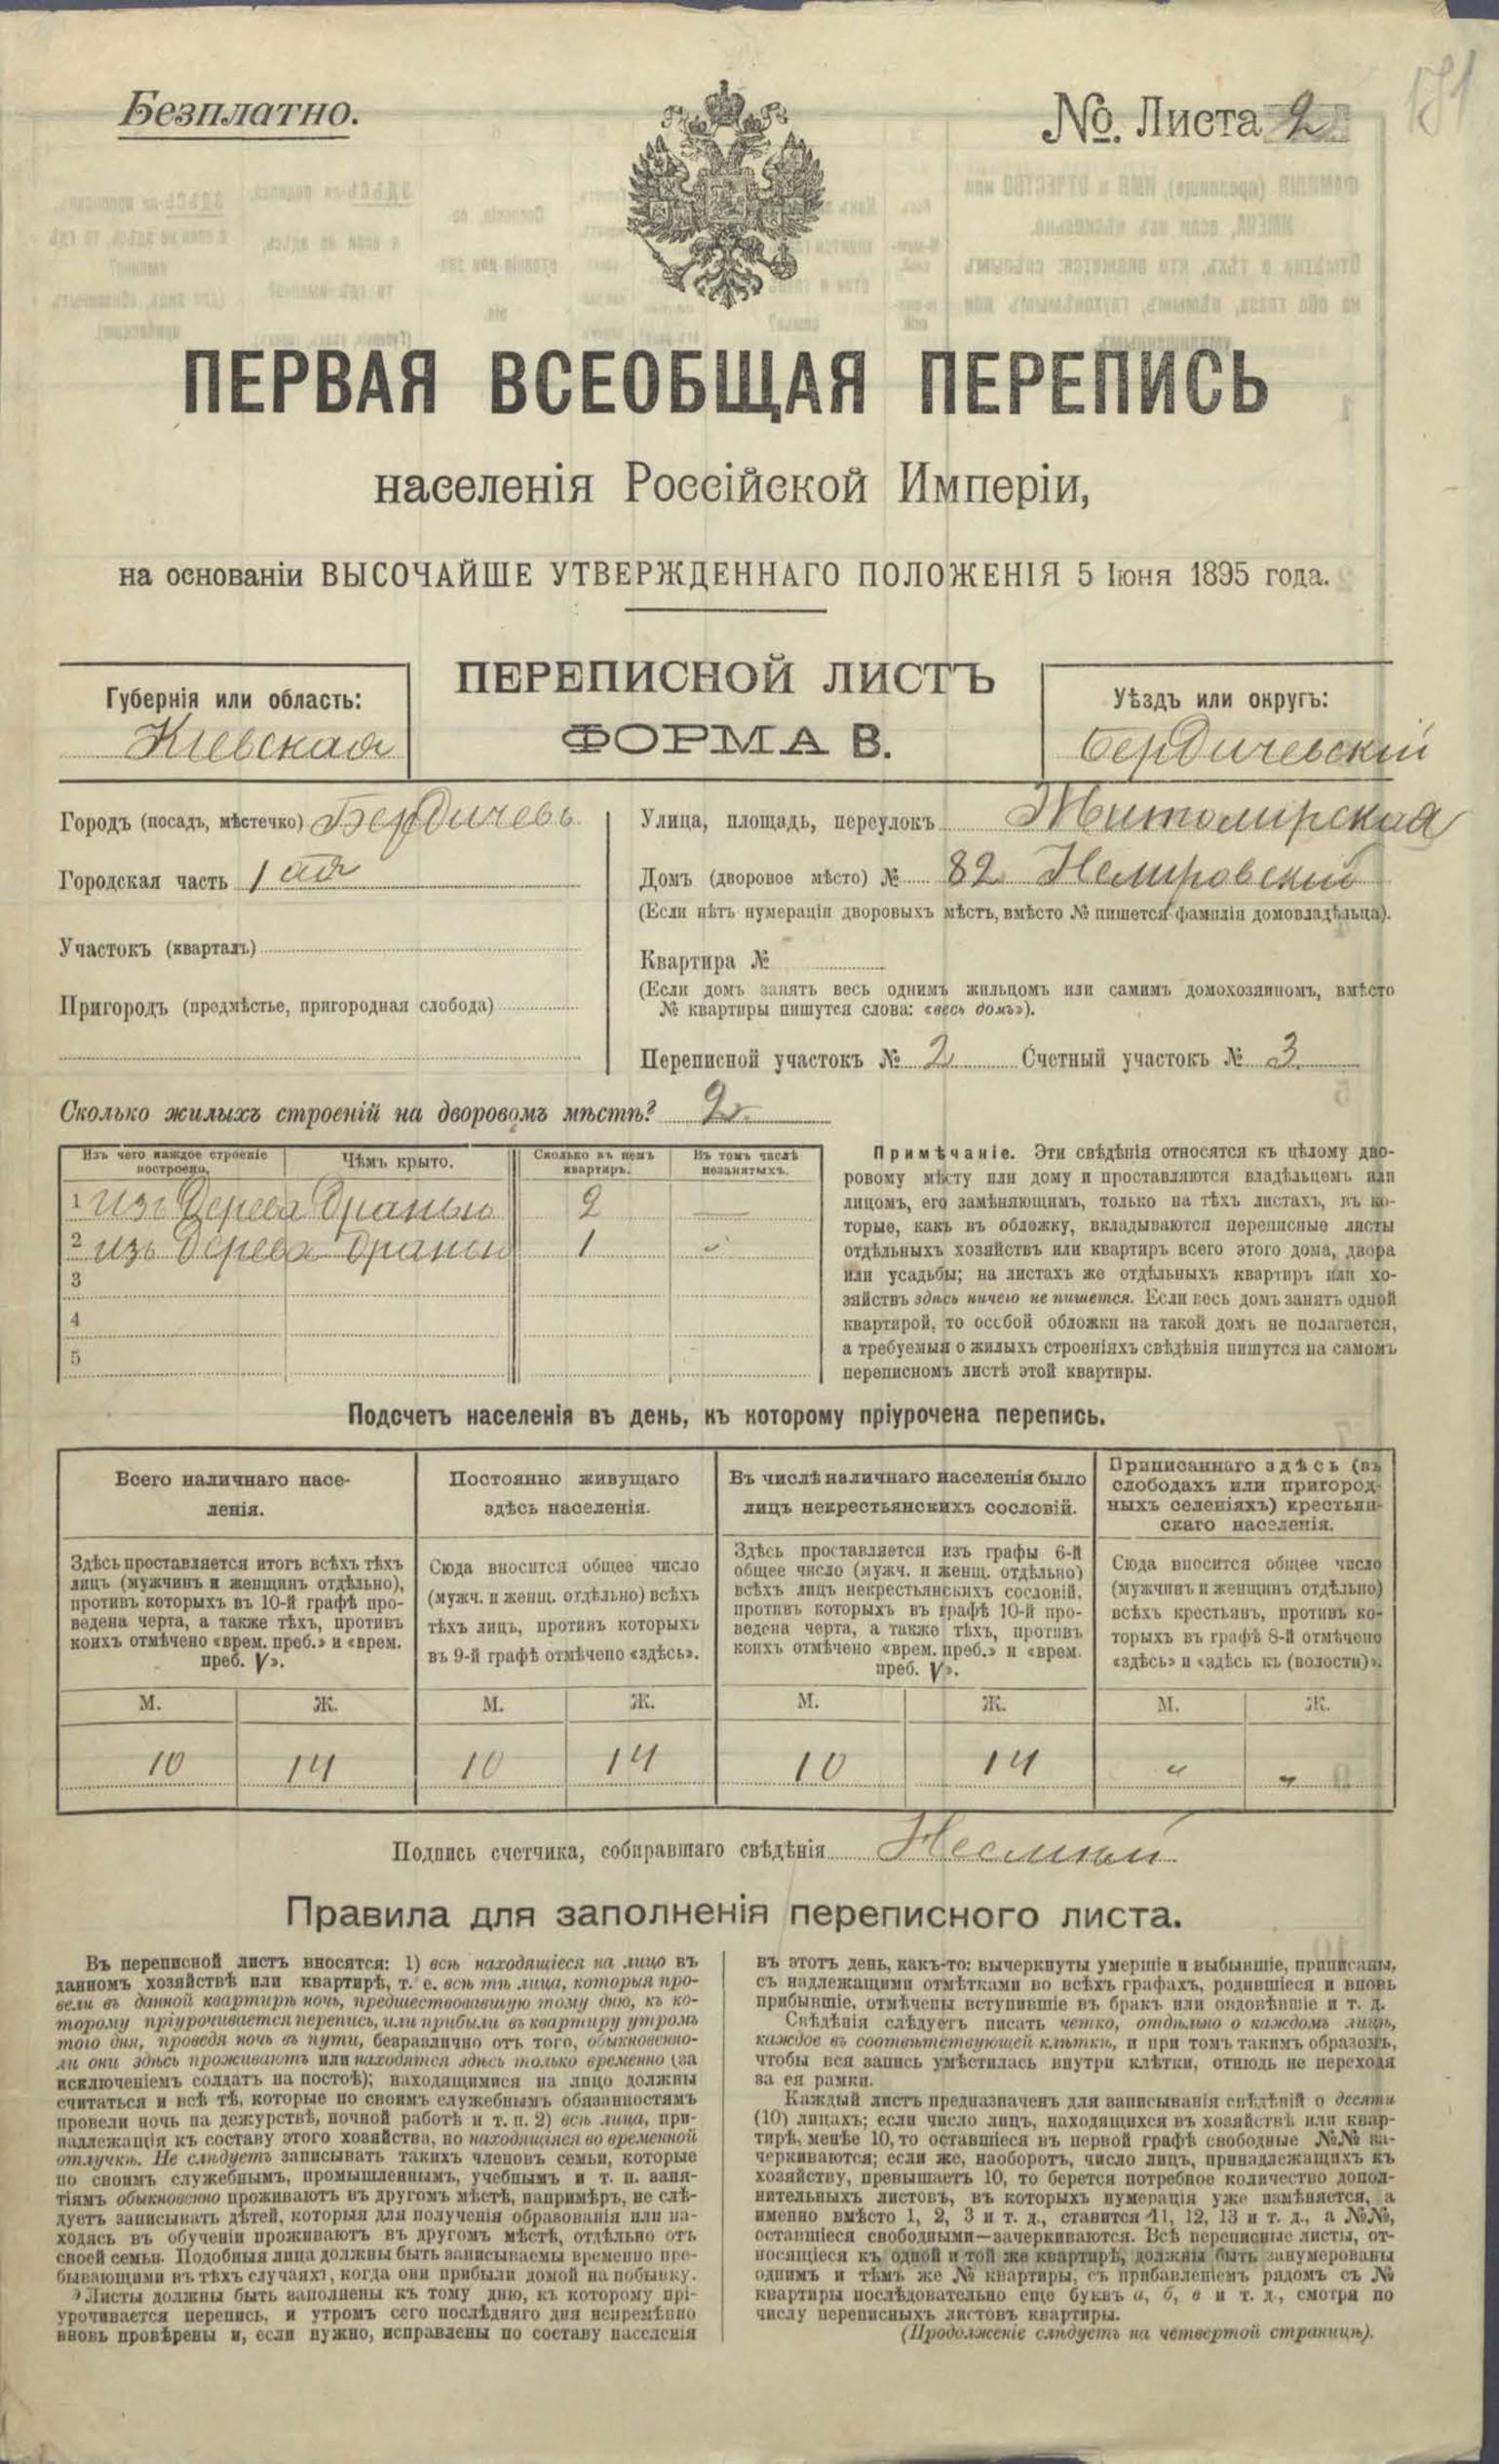 Безплатно.
№ Листа 2
171
ПЕРВАЯ ВСЕОБЩАЯ ПЕРЕПИСЬ
населенія Россійской Имперіи,
на основаніи ВЫСОЧАЙШЕ УТВЕРЖДЕННАГО ПОЛОЖЕНІЯ 5 Іюня 1895 года.
ПЕРЕПИСНОЙ ЛИСТЪ
ФОРМА В.
Губернія или область:
Кіевская
Уѣздъ или округъ:
Бердичевскій
Городъ (посадъ, мѣстечко) Бердичевъ
Городская часть 1 ая
Участокъ (кварталъ)
Пригородъ (предмѣстье, пригородная слобода)
Улица, площадь, переулокъ Житомирская
Домъ (дворовое мѣсто) № 82 Немировскій
(Если нѣтъ нумераціи дворовыхъ мѣстъ, вмѣсто № пишется фамилія домовладѣльца).
Квартира №
(Если домъ занятъ весь однимъ жильцомъ или самимъ домохозяиномъ, вмѣсто
№ квартиры пишутся слова: «весь домъ»).
Переписной участокъ № 2 Счетный участокъ № 3
Сколько жилыхъ строеній на дворовомъ мѣстѣ? 2
Изъ чего каждое строеніе
построено.
Чѣмъ крыто.
Сколько въ немъ
квартиръ.
Въ томъ числѣ
незанятыхъ.
1 изъ Дерева Дранью 2 —
2 изъ Дерева Дранью 1
3
4
5
Примѣчаніе. Эти свѣдѣнія относятся къ цѣлому дво-
ровому мѣсту или дому и проставляются владѣльцемъ или
лицомъ, его замѣняющимъ, только на тѣхъ листахъ, въ ко-
торые, какъ въ обложку, вкладываются переписные листы
отдѣльныхъ хозяйствъ или квартиръ всего этого дома, двора
или усадьбы; на листахъ же отдѣльныхъ квартиръ или хо-
зяйствъ здѣсь ничего не пишется. Если весь домъ занятъ одной
квартирой, то особой обложки на такой домъ не полагается,
а требуемыя о жилыхъ строеніяхъ свѣдѣнія пишутся на самомъ
переписномъ листѣ этой квартиры.
Подсчетъ населенія въ день, къ которому пріурочена перепись.
Всего наличнаго насе-
ленія.
Здѣсь проставляется итогъ всѣхъ тѣхъ
лицъ (мужчинъ и женщинъ отдѣльно),
противъ которыхъ въ 10-й графѣ про-
ведена черта, а также тѣхъ, противъ
коихъ отмѣчено «врем. преб.» и «врем.
преб. V».
Постоянно живущаго
здѣсь населенія.
Сюда вносится общее число
(мужч. и женщ. отдѣльно) всѣхъ
тѣхъ лицъ, противъ которыхъ
въ 9-й графѣ отмѣчено «здѣсь».
Въ числѣ наличнаго населенія было
лицъ некрестьянскихъ сословій.
Здѣсь проставляется изъ графы 6-й
общее число (мужч. и женщ. отдѣльно)
всѣхъ лицъ некрестьянскихъ сословій,
противъ которыхъ въ графѣ 10-й про-
ведена черта, а также тѣхъ, противъ
коихъ отмѣчено «врем. преб.» и «врем.
преб. V».
Приписаннаго здѣсь (въ
слободахъ или пригород-
ныхъ селеніяхъ) крестьян-
скаго населенія.
Сюда вносится общее число
(мужчинъ и женщинъ отдѣльно)
всѣхъ крестьянъ, противъ ко-
торыхъ въ графѣ 8-й отмѣчено
«здѣсь» и «здѣсь къ (волости)».
М. Ж. М. Ж. М. Ж. М. Ж.
10 14 10 14 10 14 " "
Подпись счетчика, собиравшаго свѣдѣнія
Правила для заполненія переписного листа.
Въ переписной листъ вносятся: 1) всѣ находящіеся на лицо въ
данномъ хозяйствѣ или квартирѣ, т. е. всѣ тѣ лица, которыя про-
вели въ данной квартирѣ ночь, предшествовавшую тому дню, къ ко-
торому пріурочивается перепись, или прибыли въ квартиру утромъ
того дня, проведя ночь въ пути, безразлично отъ того, обыкновенно-
ли они здѣсь проживаютъ или находятся здѣсь только временно (за
исключеніемъ солдатъ на постоѣ); находящимися на лицо должны
считаться и всѣ тѣ, которые по своимъ служебнымъ обязанностямъ
провели ночь на дежурствѣ, ночной работѣ и т. п. 2) всѣ лица, при-
надлежащія къ составу этого хозяйства, но находящіяся во временной
отлучкѣ. Не слѣдуетъ записывать такихъ членовъ семьи, которые
по своимъ служебнымъ, промышленнымъ, учебнымъ и т. п. заня-
тіямъ обыкновенно проживаютъ въ другомъ мѣстѣ, напримѣръ, не слѣ-
дуетъ записывать дѣтей, которыя для полученія образованія или на-
ходясь въ обученіи проживаютъ въ другомъ мѣстѣ, отдѣльно отъ
своей семьи. Подобныя лица должны быть записываемы временно пре-
бывающими въ тѣхъ случаяхъ, когда они прибыли домой на побывку.
Листы должны быть заполнены къ тому дню, къ которому прі-
урочивается перепись, и утромъ сего послѣдняго дня непремѣнно
вновь провѣрены и, если нужно, исправлены по составу населенія
въ этотъ день, какъ-то: вычеркнуты умершіе и выбывшіе, приписаны,
съ надлежащими отмѣтками во всѣхъ графахъ, родившіеся и вновь
прибывшіе, отмѣчены вступившіе въ бракъ или овдовѣвшіе и т. д.
Свѣдѣнія слѣдуетъ писать четко, отдѣльно о каждомъ лицѣ,
каждое въ соотвѣтствующей клѣткѣ, и при томъ такимъ образомъ,
чтобы вся запись умѣстилась внутри клѣтки, отнюдь не переходя
за ея рамки.
Каждый листъ предназначенъ для записыванія свѣдѣній о десяти
(10) лицахъ; если число лицъ, находящихся въ хозяйствѣ или квар-
тирѣ, менѣе 10, то оставшіеся въ первой графѣ свободные №№ за-
черкиваются; если же, наоборотъ, число лицъ, принадлежащихъ къ
хозяйству, превышаетъ 10, то берется потребное количество допол-
нительныхъ листовъ, въ которыхъ нумерація уже измѣняется, а
именно вмѣсто 1, 2, 3 и т. д., ставится 11, 12, 13 и т. д., а №№,
оставшіеся свободными—зачеркиваются. Всѣ переписные листы, от-
носящіеся къ одной и той же квартирѣ, должны быть занумерованы
однимъ и тѣмъ же № квартиры, съ прибавленіемъ рядомъ съ №
квартиры послѣдовательно еще буквъ а, б, в и т. д., смотря по
числу переписныхъ листовъ квартиры.
(Продолженіе слѣдуетъ на четвертой страницѣ).